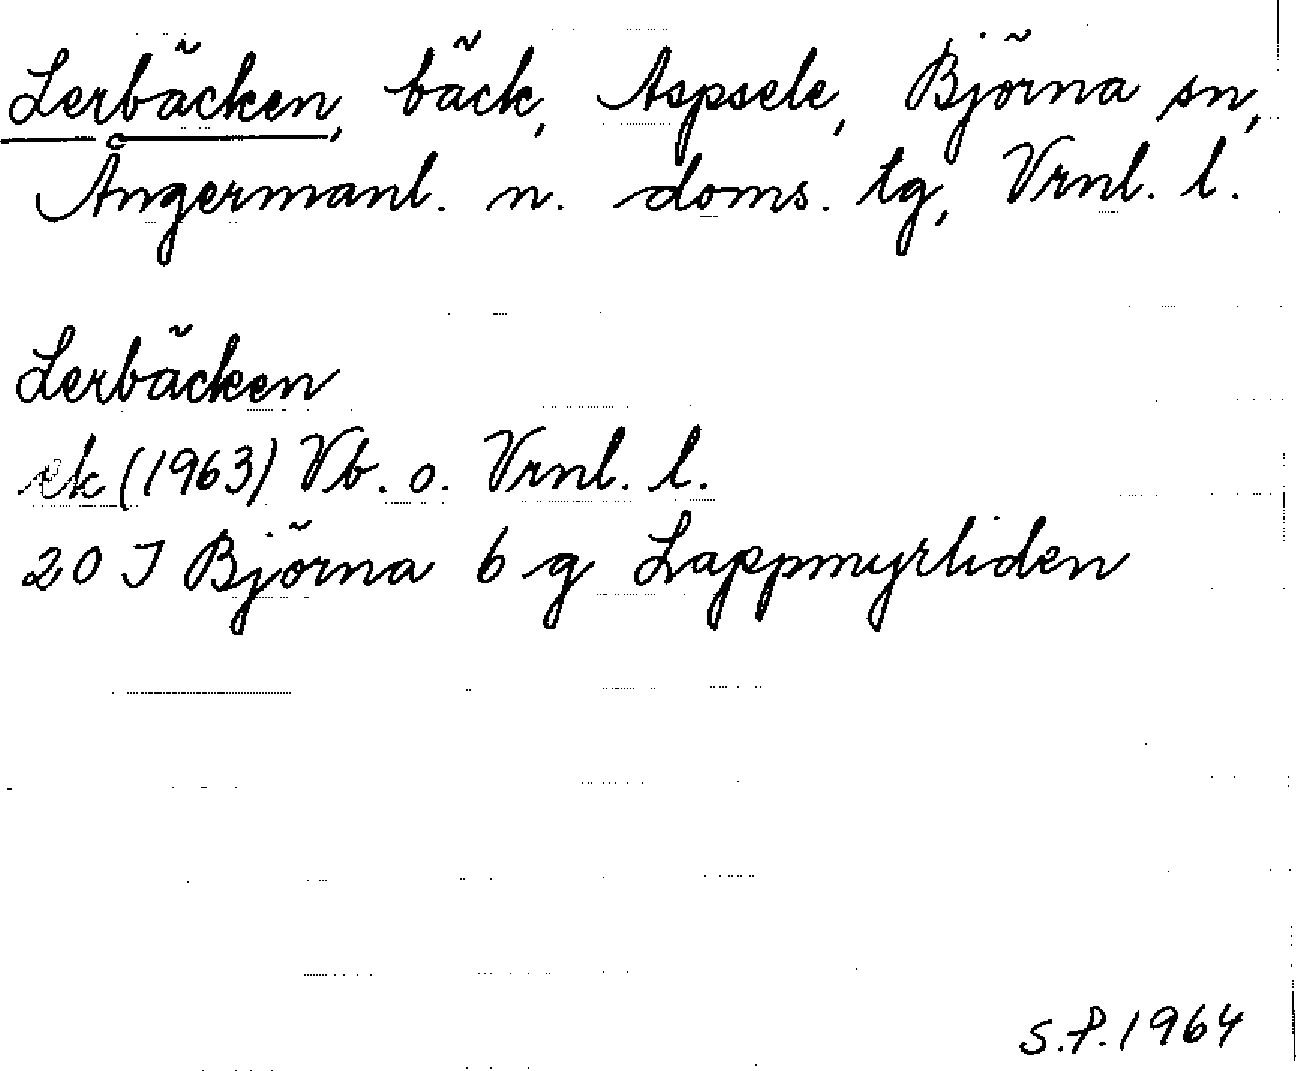 Lerbäcken, bäck, Aspsele, Björna sn,
Ångermanl. n. doms. tg, Vrnl. l.
Lerbäcken
ek (1963) Vb. o. Vrnl. l.
20 J Björna 6 g Lappmyrliden
S.P. 1964